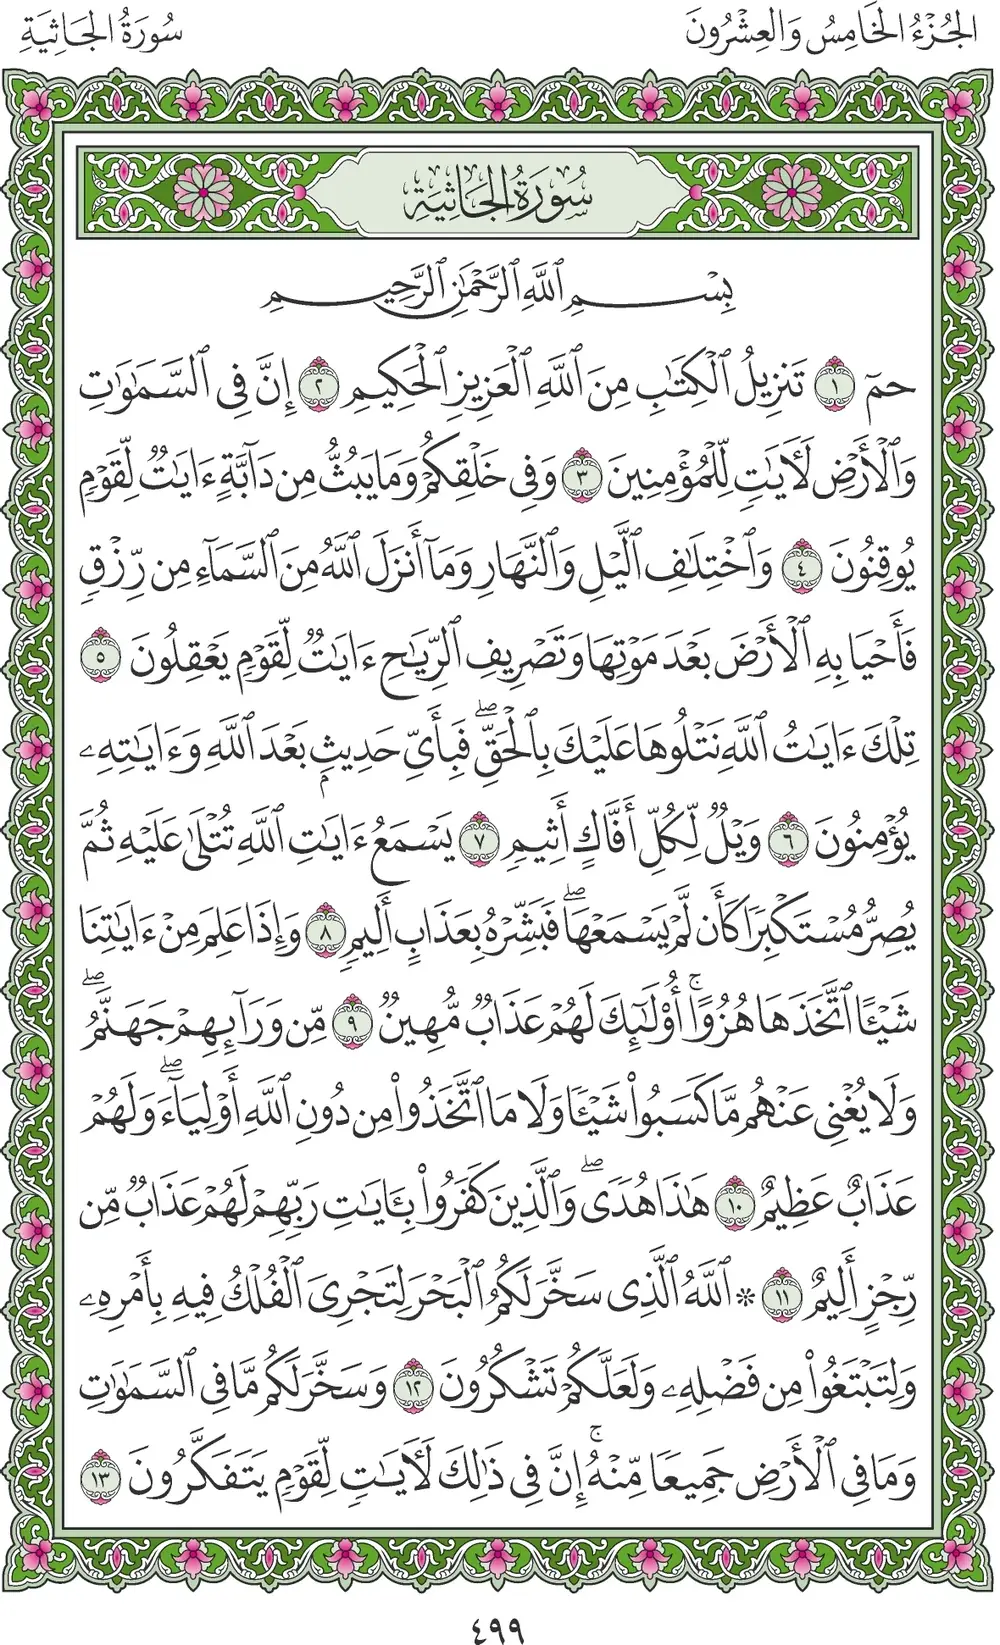 الجُزْءُ الخَامِسُ وَالعِشْرُونَ
سُورَةُ الجَاثِيَةِ
سُورَةُ الجَاثِيَةِ
بِسْمِ ٱللَّهِ ٱلرَّحْمَٰنِ ٱلرَّحِيمِ
حمٓ ١ تَنزِيلُ ٱلْكِتَٰبِ مِنَ ٱللَّهِ ٱلْعَزِيزِ ٱلْحَكِيمِ ٢ إِنَّ فِى ٱلسَّمَٰوَٰتِ
وَٱلْأَرْضِ لَأٓيَٰتٍ لِّلْمُؤْمِنِينَ ٣ وَفِى خَلْقِكُمْ وَمَا يَبُثُّ مِن دَآبَّةٍ ءَايَٰتٌ لِّقَوْمٍ
يُوقِنُونَ ٤ وَٱخْتِلَٰفِ ٱلَّيْلِ وَٱلنَّهَارِ وَمَآ أَنزَلَ ٱللَّهُ مِنَ ٱلسَّمَآءِ مِن رِّزْقٍ
فَأَحْيَا بِهِ ٱلْأَرْضَ بَعْدَ مَوْتِهَا وَتَصْرِيفِ ٱلرِّيَٰحِ ءَايَٰتٌ لِّقَوْمٍ يَعْقِلُونَ ٥
تِلْكَ ءَايَٰتُ ٱللَّهِ نَتْلُوهَا عَلَيْكَ بِٱلْحَقِّۖ فَبِأَىِّ حَدِيثٍۭ بَعْدَ ٱللَّهِ وَءَايَٰتِهِۦ
يُؤْمِنُونَ ٦ وَيْلٌ لِّكُلِّ أَفَّاكٍ أَثِيمٍ ٧ يَسْمَعُ ءَايَٰتِ ٱللَّهِ تُتْلَىٰ عَلَيْهِ ثُمَّ
يُصِرُّ مُسْتَكْبِرًا كَأَن لَّمْ يَسْمَعْهَاۖ فَبَشِّرْهُ بِعَذَابٍ أَلِيمٍ ٨ وَإِذَا عَلِمَ مِنْ ءَايَٰتِنَا
شَيْـًٔا ٱتَّخَذَهَا هُزُوًاۚ أُو۟لَٰٓئِكَ لَهُمْ عَذَابٌ مُّهِينٌ ٩ مِّن وَرَآئِهِمْ جَهَنَّمُۖ
وَلَا يُغْنِى عَنْهُم مَّا كَسَبُوا۟ شَيْـًٔا وَلَا مَا ٱتَّخَذُوا۟ مِن دُونِ ٱللَّهِ أَوْلِيَآءَۖ وَلَهُمْ
عَذَابٌ عَظِيمٌ ١٠ هَٰذَا هُدًىۖ وَٱلَّذِينَ كَفَرُوا۟ بِـَٔايَٰتِ رَبِّهِمْ لَهُمْ عَذَابٌ مِّن
رِّجْزٍ أَلِيمٌ ١١ ۞ ٱللَّهُ ٱلَّذِى سَخَّرَ لَكُمُ ٱلْبَحْرَ لِتَجْرِىَ ٱلْفُلْكُ فِيهِ بِأَمْرِهِۦ
وَلِتَبْتَغُوا۟ مِن فَضْلِهِۦ وَلَعَلَّكُمْ تَشْكُرُونَ ١٢ وَسَخَّرَ لَكُم مَّا فِى ٱلسَّمَٰوَٰتِ
وَمَا فِى ٱلْأَرْضِ جَمِيعًا مِّنْهُۚ إِنَّ فِى ذَٰلِكَ لَأٓيَٰتٍ لِّقَوْمٍ يَتَفَكَّرُونَ ١٣
٤٩٩